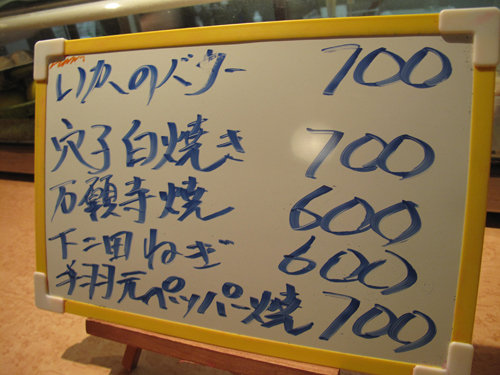 いかのバター 700
穴子白焼き 700
万願寺焼 600
下二田ねぎ 600
手羽元ペッパー焼 700